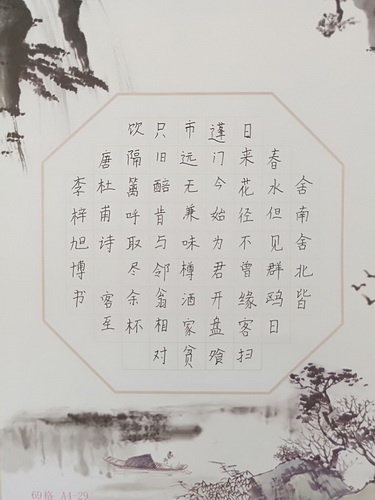 舍南舍北皆
春水但见群鸥日
日来花径不曾缘客扫
蓬门今始为君开盘飧
市远无兼味樽酒家贫
只旧醅肯与邻翁相对
饮隔篱呼取尽余杯
唐杜甫诗 客至
李梓旭博书
69格 A4-29